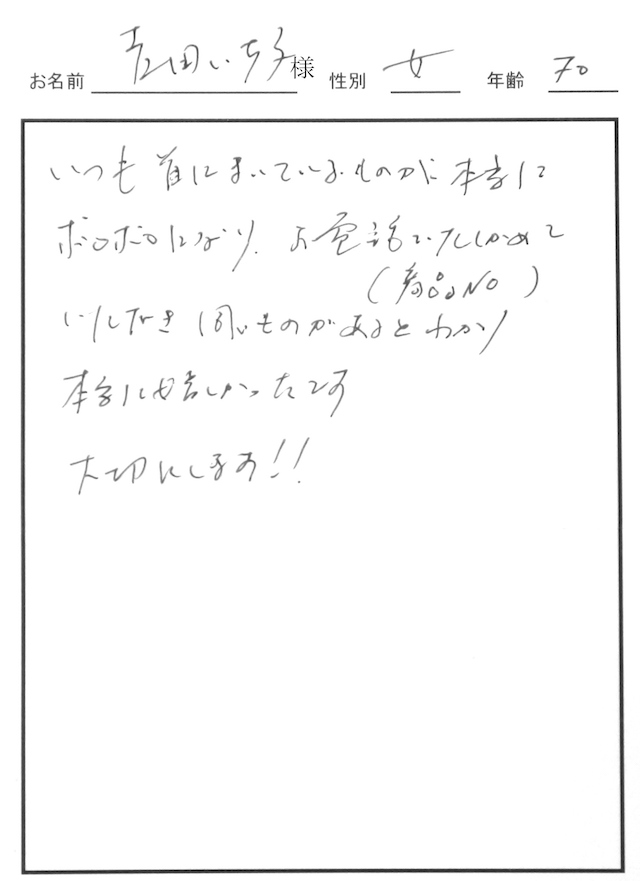 お名前 吉田い 子様 性別 女 年齢 70
いつも首にまいているものが本当に
ボロボロになり、お電話でたしかめて
(商品No)
いただき同じものがあるとわかり
本当に嬉しかったです
大切にします!!